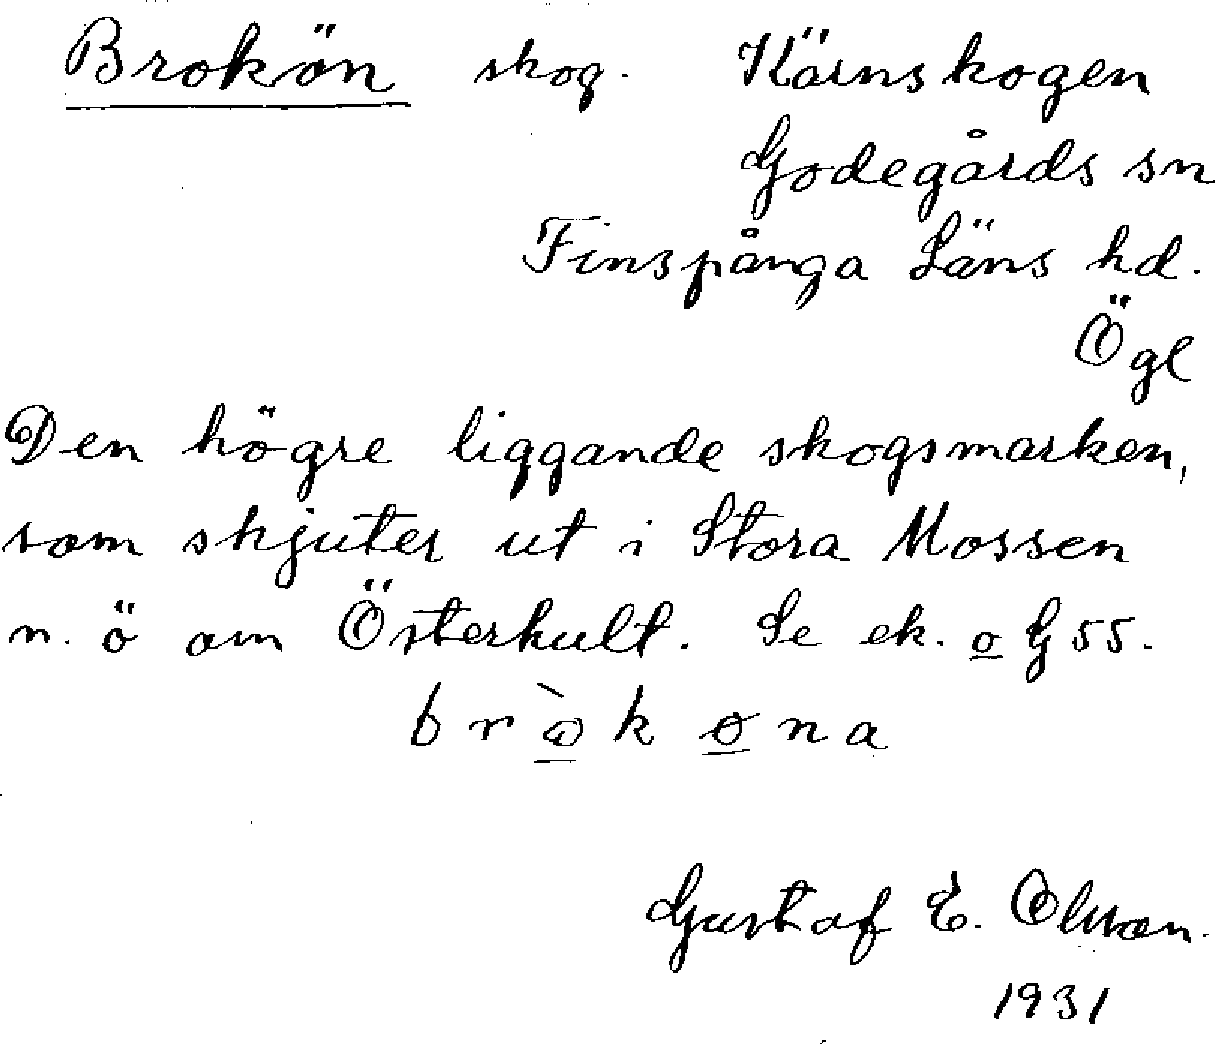 Brokön skog. Kärnskogen
Godegårds sn
Finspånga Läns hd.
Ögl
Den högre liggande skogsmarken,
som skjuter ut i Stora Mossen
n. ö om Österhult. Se ek. o G 55.
bròkøna
Gustaf E. Olsson.
1931